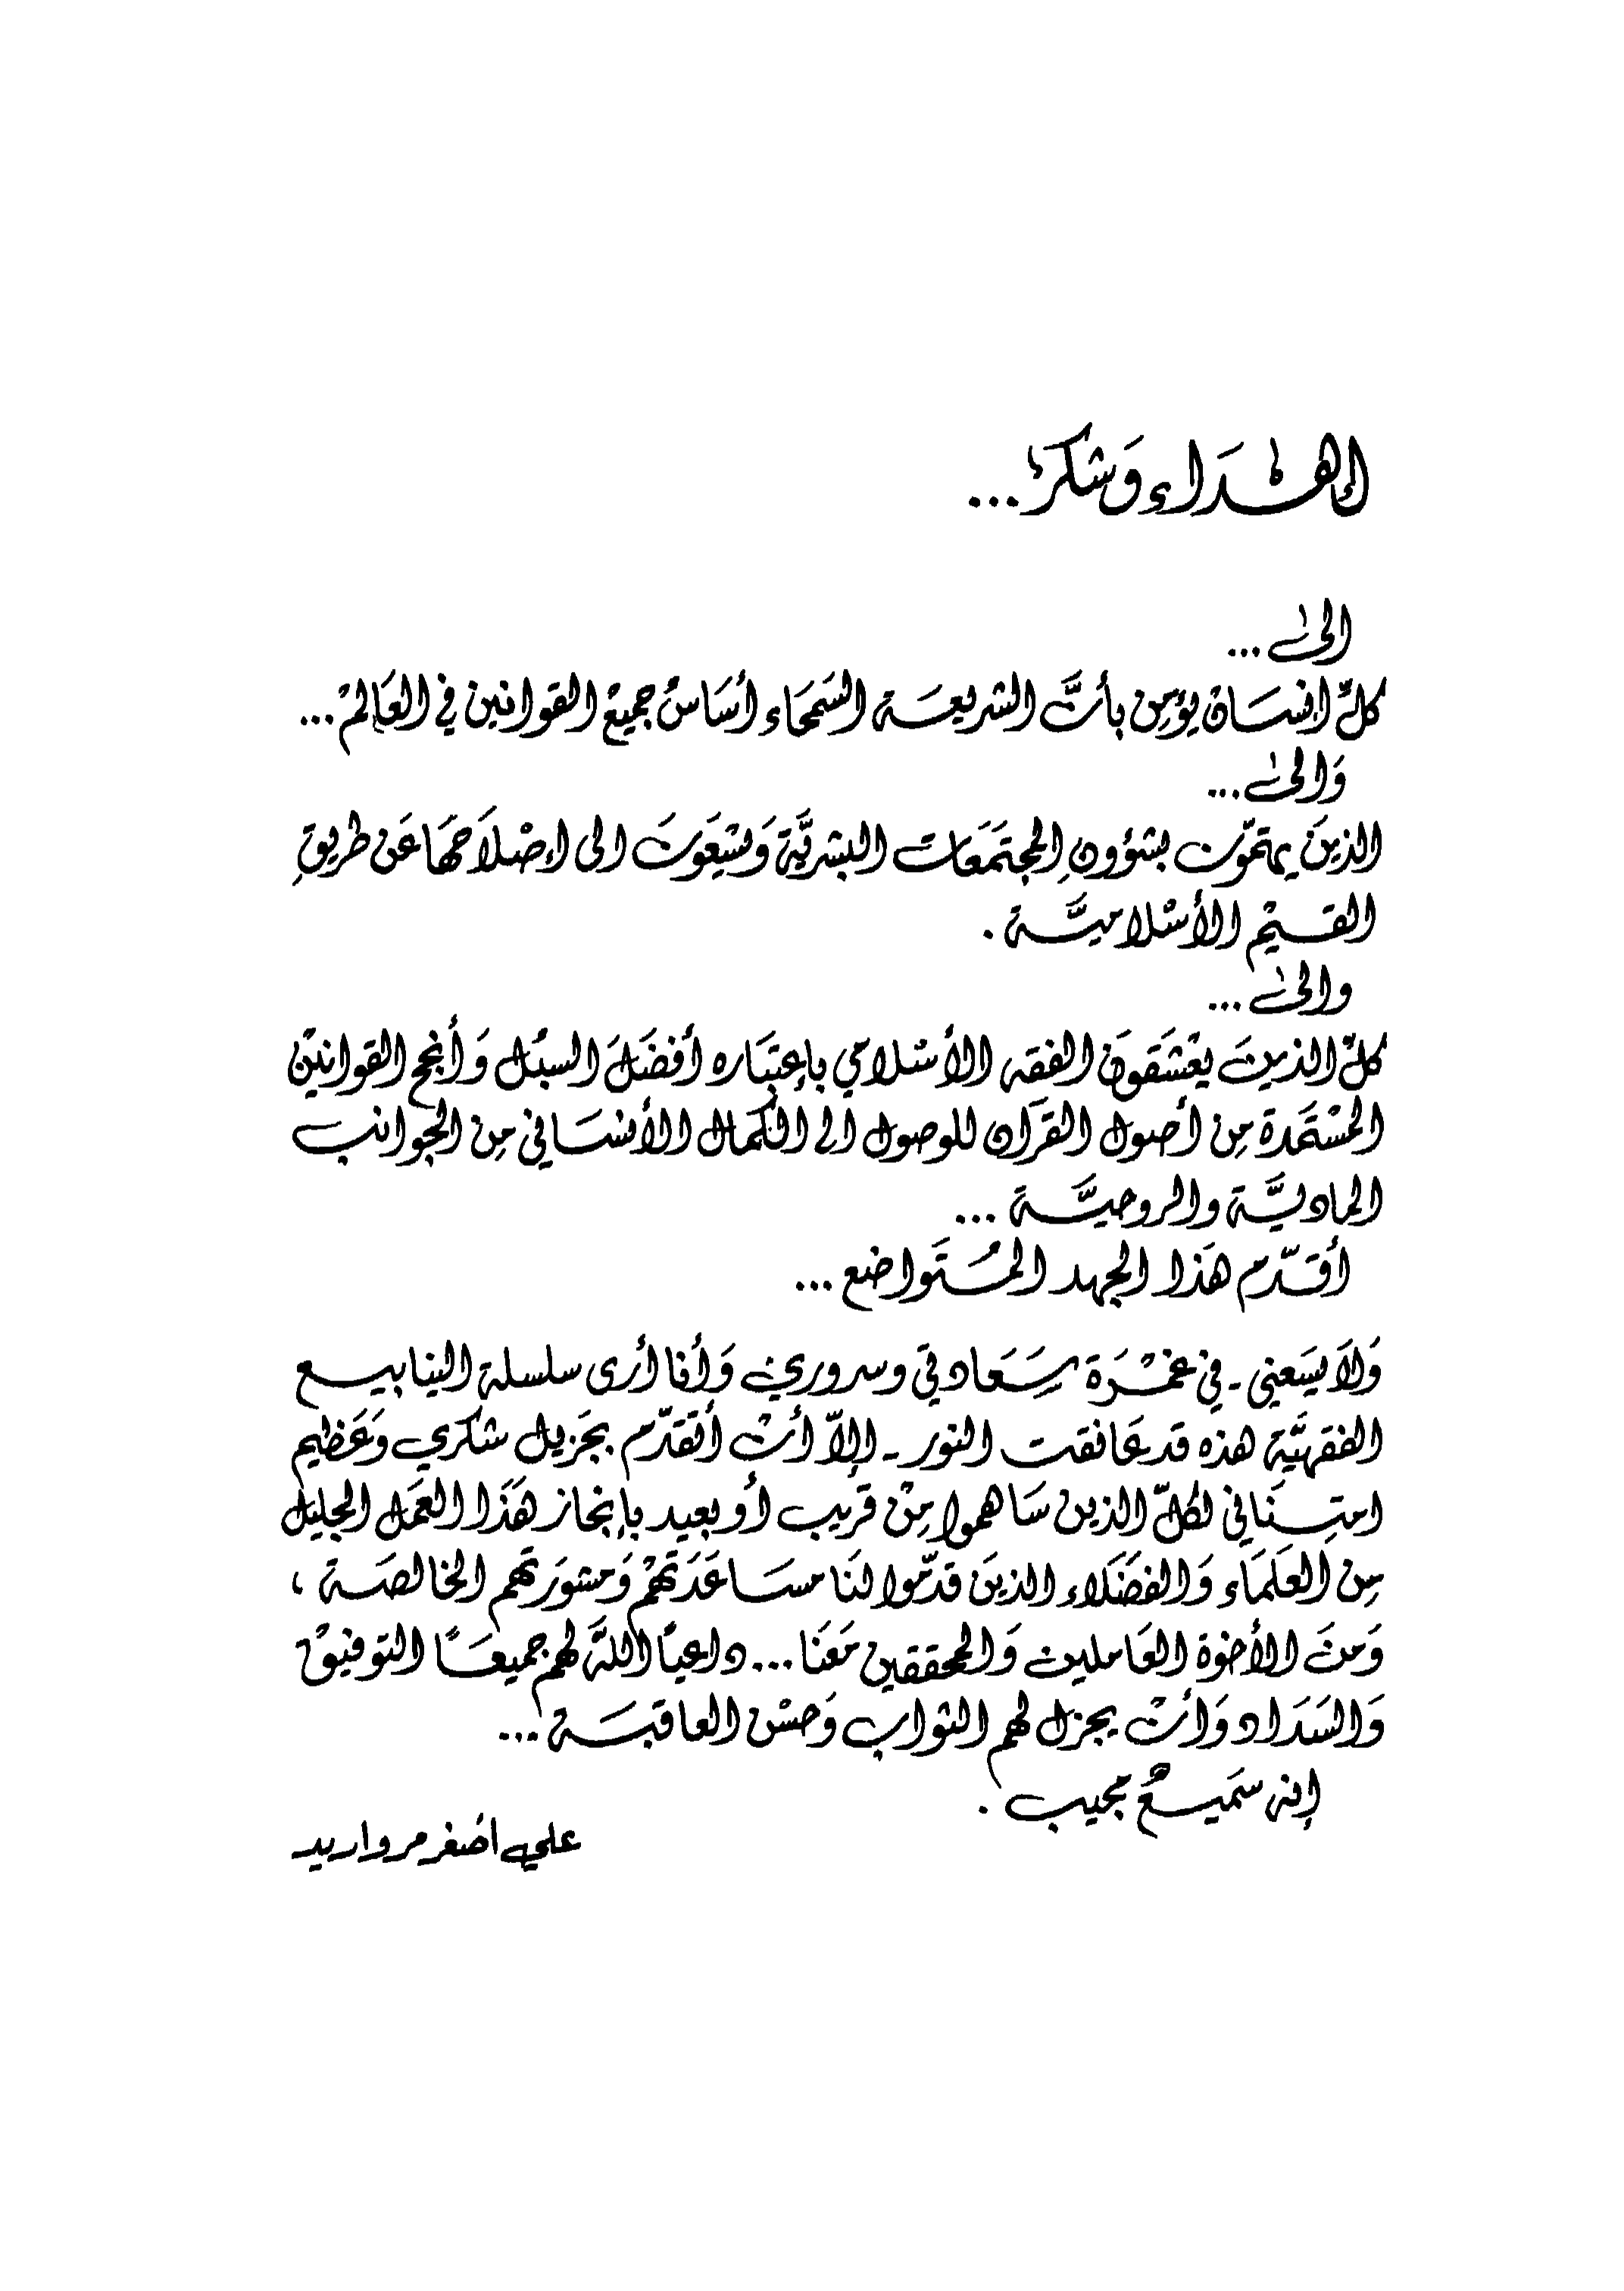 إهداء وشكر...
الى...
كلّ إنسان يؤمن بأنَّ الشريعة السمحاء أساسُ جميع القوانين في العالم...
وَالى...
الذينَ يهتمّون بشؤونِ المجتمَعَات البشريَّة وَيسْعَونَ الى إصْلاَحهَا عَن طريقِ
القيم الأسْلاميَّة .
والى...
كلّ الذينَ يعْشَقونَ الفقه الأسْلامي بإعتبَاره أفضَلَ السبُل وَأنجح القوانيْن
المسْتَمدة مِن أصول القرآن للوصول الى الكمال الأنسَاني مِن الجوانب
الماديَّة والروحيَّة ...
أقدّم هَذا الجهد المُتَواضع ...
وَلاَ يسَعني - في غمْرَة سَعَادتي وسروري وَأنا أرى سلسلة الينابيع
الفقهيَّة هذه قد عَانقت النور - إلاّ أنْ أتقدّم بجَزيل شكري وَعَظيم
امتِنَاني لكلّ الذين سَاهموا مِنْ قريب أو بعيد بإنجاز هَذَا العَمَل الجليل
مِن العلَمَاء وَالفضَلاء الذينَ قدّموا لنَا مسَاعَدَتهمْ وَمشورَتهم الخالصَة ،
وَمنَ الأخوة العَاملين وَالمحققين مَعَنا ... داعيًا اللَّهَ لهم جميعًا التوفيق
وَالسَدَاد وَأنْ يجزل لهم الثواب وَحسْن العاقبَة ...
إنه سَميعٌ مجيب .
علي اصغر مرواريد